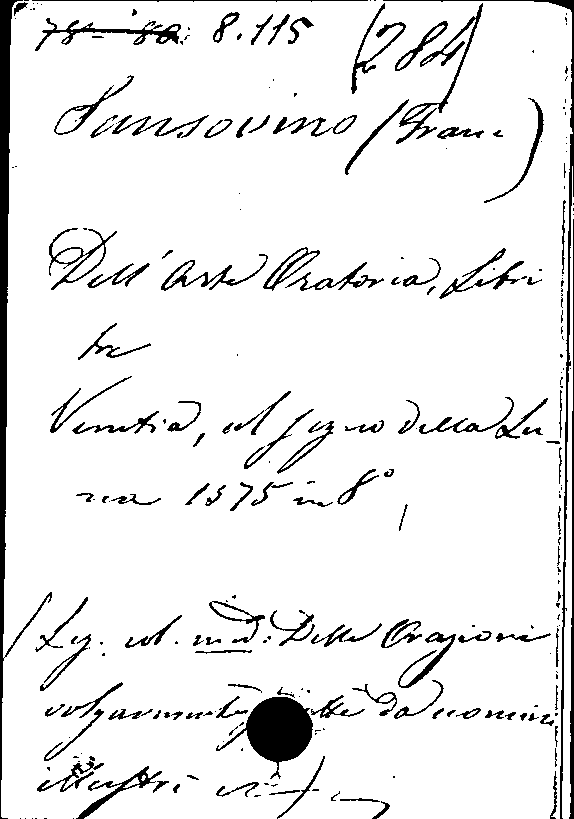 78-80 8.115 (284)
Sansovino (Franc)
Dell' Arte Oratoria, Libri
tre
Venetia, al segno della Lu-
na 1575 in 8°
(Leg. col. med: Delle Orazioni
volgarmente da uomini
illustri